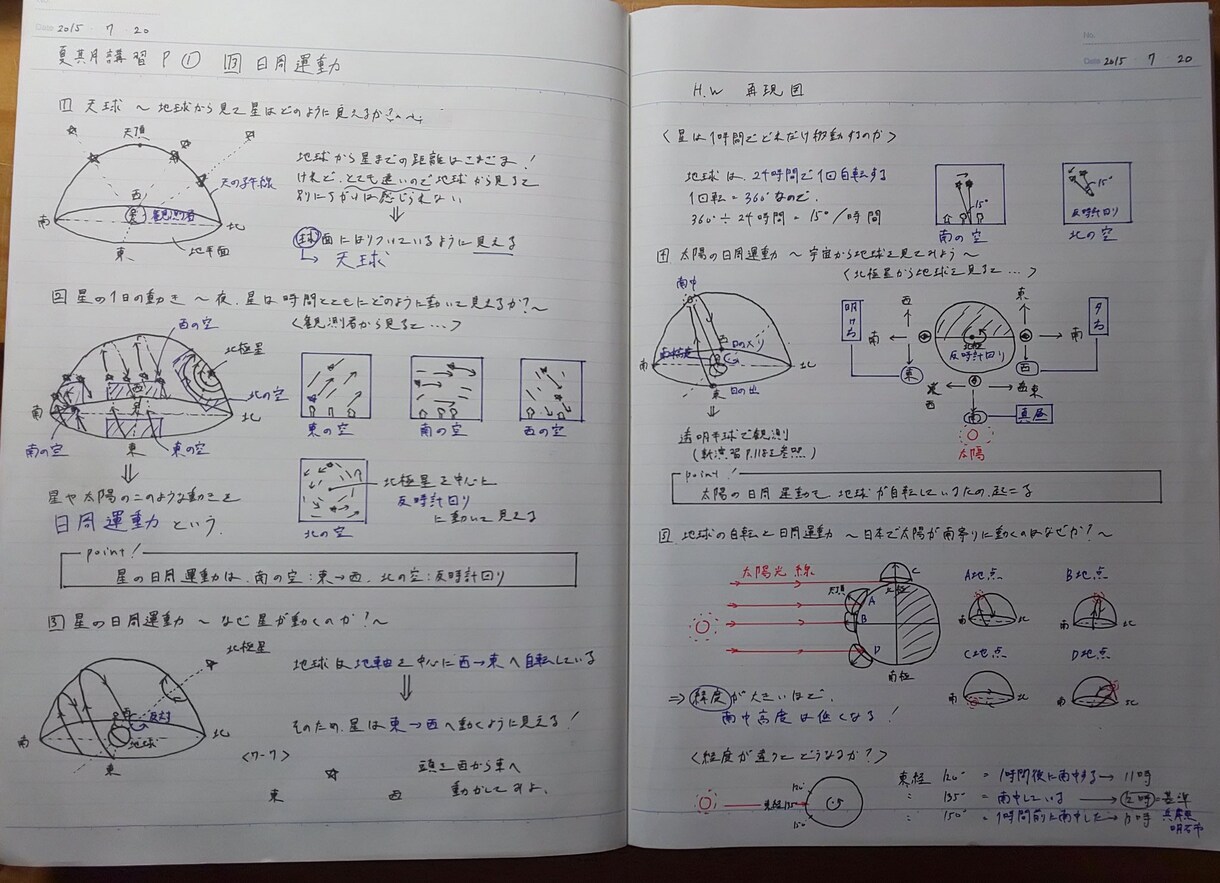 Date 2015 7 20
夏期講習 P① 13 日周運動
1 天球 〜地球から見て星はどのように見えるか?〜
天頂
天の子午線
西
南
観測者
北
東
地平面
地球から星までの距離はさまざま!
けれど、とても遠いので地球から見ると
別にちがいは感じられない
⇓
球面にはりついているように見える
→ 天球
2 星の1日の動き 〜夜、星は時間とともにどのように動いて見えるか?〜
〈観測者から見ると…〉
西の空
北極星
北の空
西
南
北
南の空
東
東の空
東の空
南の空
西の空
北の空
北極星を中心に
反時計回り
に動いて見える
⇓
星や太陽のこのような動きを
日周運動 という.
point!
星の日周運動は、南の空:東→西、北の空:反時計回り
3 星の日周運動 〜なぜ星が動くのか?〜
北極星
西
反対
地球
南
北
東
地球は地軸を中心に西→東へ自転している
⇓
そのため、星は東→西へ動くように見える!
〈ワーク〉
東
西
頭を西から東へ
動かしてみよ.
No.
Date 2015 7 20
H.W 再現図
〈星は1時間でどれだけ移動するのか〉
地球は、24時間で1回自転する
1回転=360°なので、
360°÷24時間=15°/時間
15°
南の空
15°
反時計回り
北の空
4 太陽の日周運動 〜宇宙から地球を見てみよう〜
〈北極星から地球を見ると…〉
南中
南中高度
日の入り
西
南
北
東
日の出
⇓
透明半球で観測
明け方
西
南
東
北極
反時計回り
東
南
西
夕方
東
西
南
真昼
太陽
point!
太陽の日周運動も地球が自転しているため、起こる
5 地球の自転と日周運動 〜日本で太陽が南寄りに動くのはなぜか?〜
太陽光線
天頂
北極
A
B
C
D
南極
A地点
南
北
B地点
南
北
C地点
南
北
D地点
南
北
⇒ 緯度が大きいほど、
南中高度は低くなる!
〈経度が違うとどうなるか?〉
120°
東経135°
150°
東経 120° = 1時間後に南中する → 11時
〃 135° = 南中している → 12時=基準
〃 150° = 1時間前に南中した → 13時
兵庫県
明石市